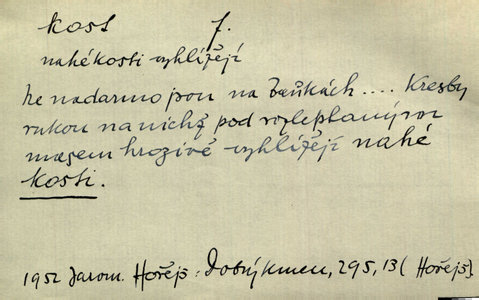 kost f.
nahé kosti vyhlížejí
ne nadarmo jsou na bankách .... Kresby
rukou na nichž pod
masem hrozivě vyhlížejí nahé
kosti.
1952 Jarom. Hořejš: Dobrý kmen, 295, 13 (Hořejš)